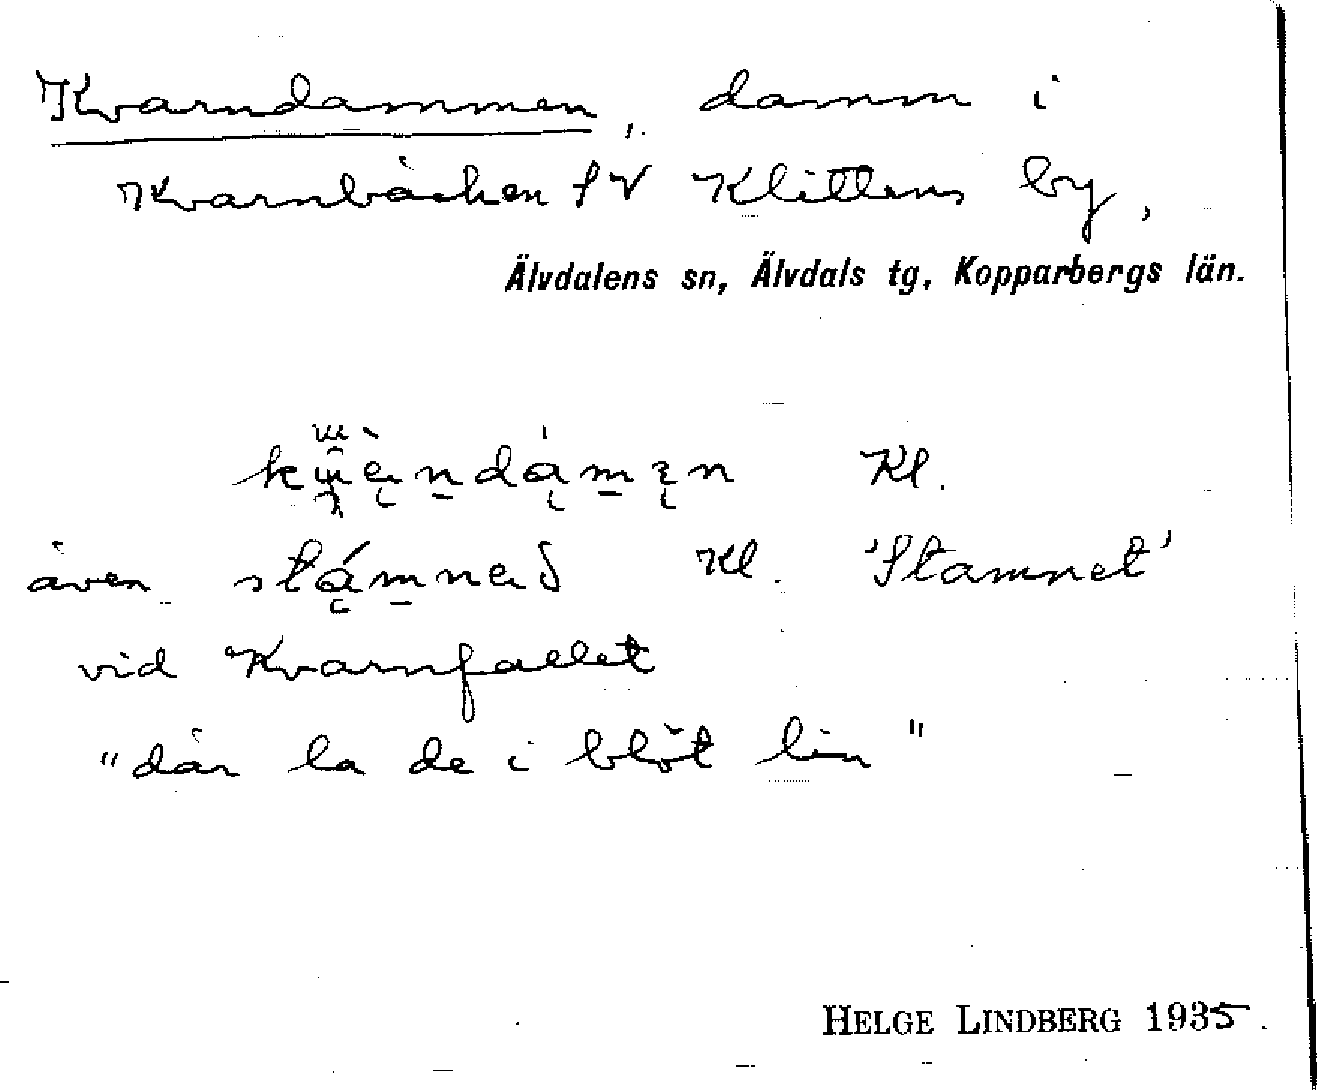 Kvarndammen, damm i
Kvarnbäcken SV Klittens by,
Älvdalens sn, Älvdals tg, Kopparbergs län.
Kl.
även Kl. 'Stamnet'
vid Kvarnfallet
"där la de i blöt lin"
HELGE LINDBERG 1935.